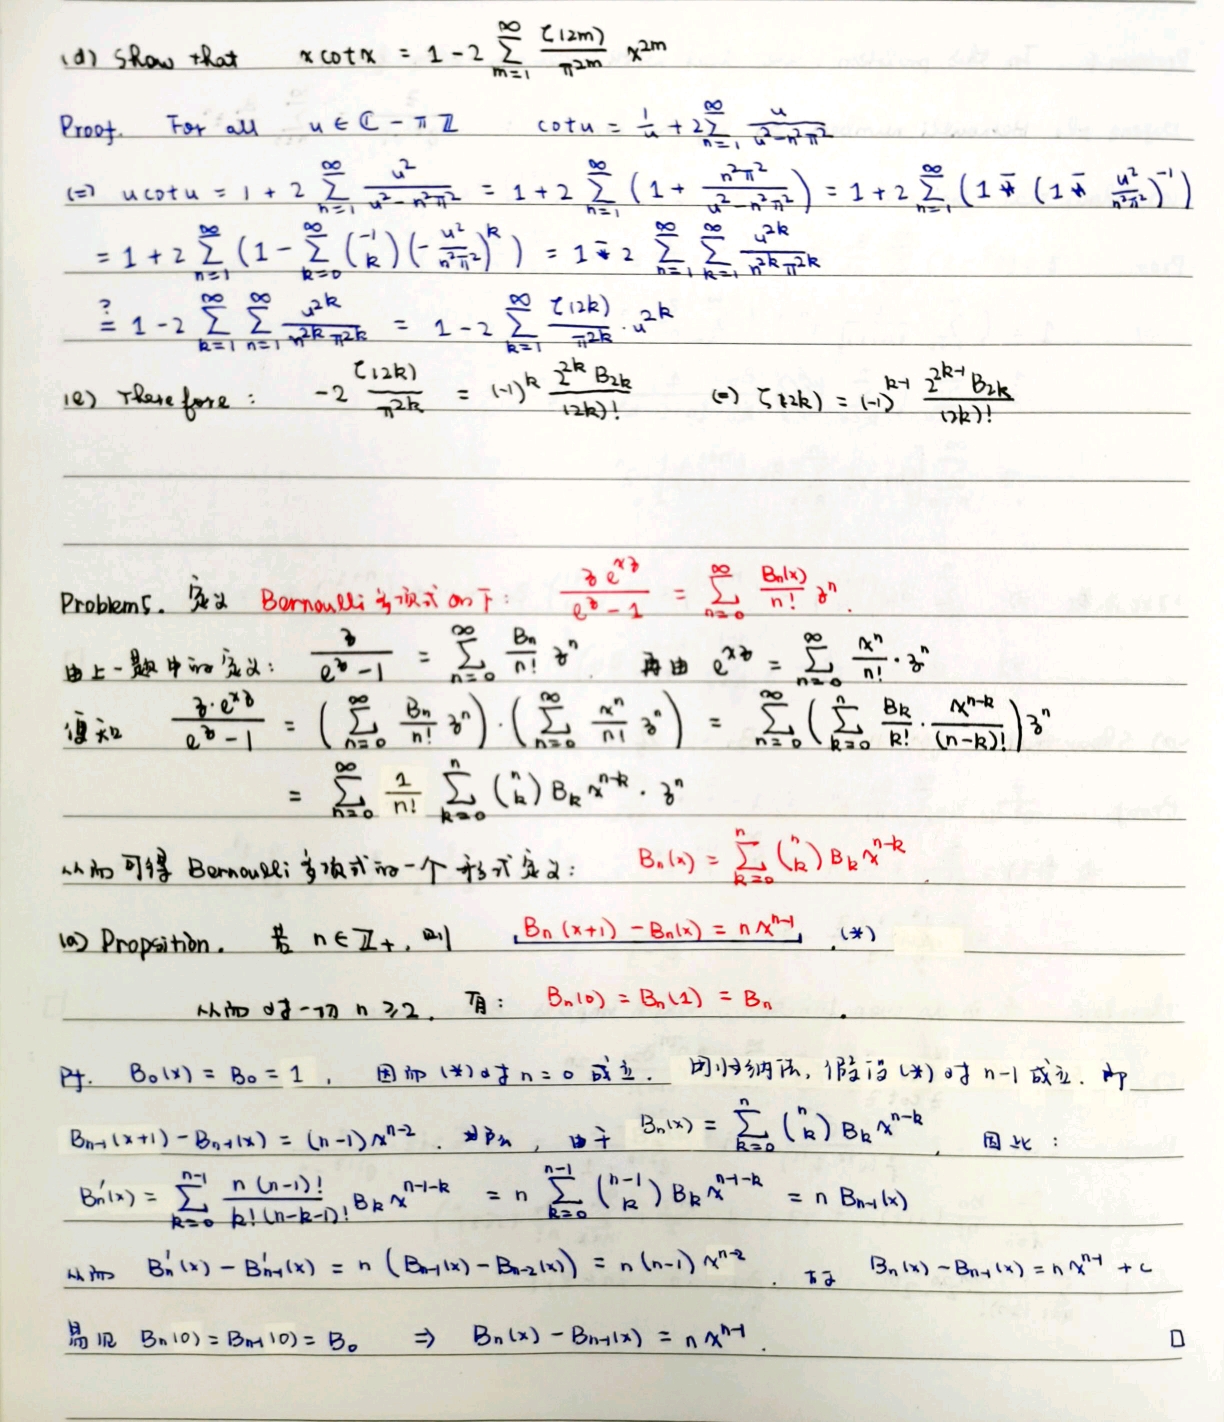 (d) Show that x cot x = 1 - 2 ∑_{m=1}^{∞} ζ(2m)/π^{2m} x^{2m}
Proof. For all u ∈ ℂ - πℤ cot u = 1/u + 2 ∑_{n=1}^{∞} u/(u²-n²π²)
(=) u cot u = 1 + 2 ∑_{n=1}^{∞} u²/(u²-n²π²) = 1 + 2 ∑_{n=1}^{∞} (1 + n²π²/(u²-n²π²)) = 1 + 2 ∑_{n=1}^{∞} (1 - (1 - u²/(n²π²))^{-1})
= 1 + 2 ∑_{n=1}^{∞} (1 - ∑_{k=0}^{∞} (-1 choose k) (-u²/(n²π²))^k) = 1 - 2 ∑_{n=1}^{∞} ∑_{k=1}^{∞} u^{2k}/(n^{2k} π^{2k})
?= 1 - 2 ∑_{k=1}^{∞} ∑_{n=1}^{∞} u^{2k}/(n^{2k} π^{2k}) = 1 - 2 ∑_{k=1}^{∞} ζ(2k)/π^{2k} · u^{2k}
(e) Therefore: -2 ζ(2k)/π^{2k} = (-1)^k 2^{2k} B_{2k}/(2k)! (=) ζ(2k) = (-1)^{k-1} 2^{2k-1} B_{2k}/(2k)!
Problem5. 定义 Bernoulli 多项式如下: z e^{xz}/(e^z - 1) = ∑_{n=0}^{∞} B_n(x)/n! z^n.
由上一题中的定义: z/(e^z - 1) = ∑_{n=0}^{∞} B_n/n! z^n. 再由 e^{xz} = ∑_{n=0}^{∞} x^n/n! · z^n
便知 z·e^{xz}/(e^z - 1) = (∑_{n=0}^{∞} B_n/n! z^n) · (∑_{n=0}^{∞} x^n/n! z^n) = ∑_{n=0}^{∞} (∑_{k=0}^{n} B_k/k! · x^{n-k}/(n-k)!) z^n
= ∑_{n=0}^{∞} 1/n! ∑_{k=0}^{n} (n choose k) B_k x^{n-k} · z^n
从而可得 Bernoulli 多项式的一个形式定义: B_n(x) = ∑_{k=0}^{n} (n choose k) B_k x^{n-k}.
(a) Propsition. 若 n ∈ ℤ_+, 则 B_n(x+1) - B_n(x) = n x^{n-1}. (*)
从而对一切 n ≥ 2, 有: B_n(0) = B_n(1) = B_n.
Pf. B_0(x) = B_0 = 1, 因而 (*) 对 n = 0 成立. 用归纳法, 假设 (*) 对 n-1 成立. 即
B_{n-1}(x+1) - B_{n-1}(x) = (n-1) x^{n-2}. , 由于 B_n(x) = ∑_{k=0}^{n} (n choose k) B_k x^{n-k}, 因此:
B_n'(x) = ∑_{k=0}^{n-1} n(n-1)!/(k!(n-k-1)!) B_k x^{n-1-k} = n ∑_{k=0}^{n-1} (n-1 choose k) B_k x^{n-1-k} = n B_{n-1}(x)
从而 B_n'(x) - B_{n-1}'(x) = n (B_{n-1}(x) - B_{n-2}(x)) = n(n-1) x^{n-2}. 故 B_n(x) - B_{n-1}(x) = n x^{n-1} + c
易见 B_n(0) = B_{n-1}(0) = B_0 ⇒ B_n(x) - B_{n-1}(x) = n x^{n-1}. □